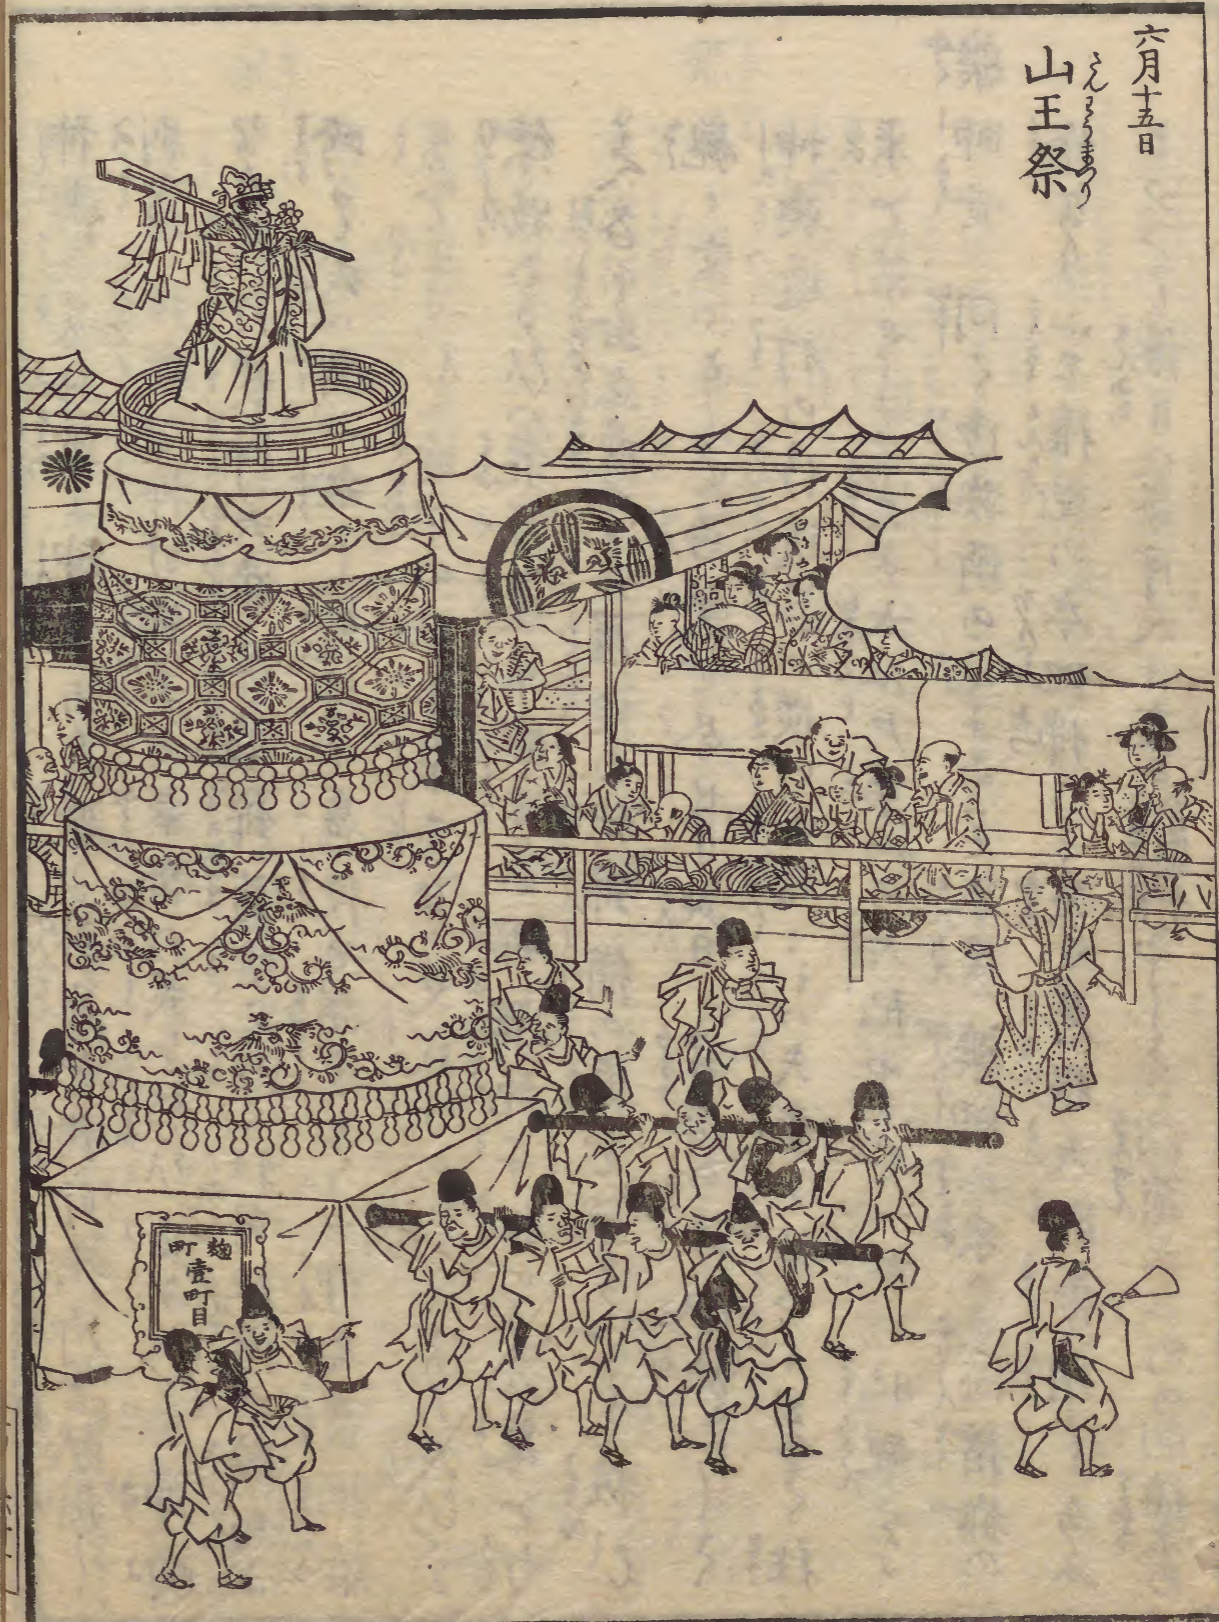 六月十五日
山王祭
さんわうまつり
麹町
壹町目